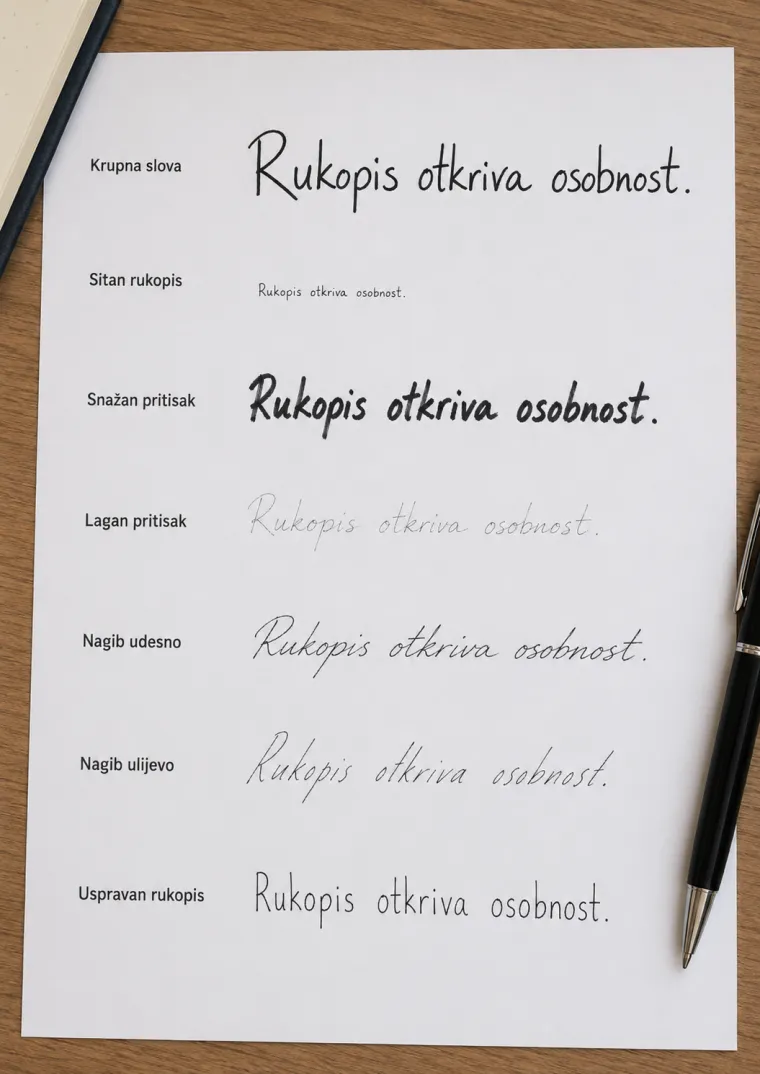 Krupna slova Rukopis otkriva osobnost.
Sitan rukopis Rukopis otkriva osobnost.
Snažan pritisak Rukopis otkriva osobnost.
Lagan pritisak Rukopis otkriva osobnost.
Nagib udesno Rukopis otkriva osobnost.
Nagib ulijevo Rukopis otkriva osobnost.
Uspravan rukopis Rukopis otkriva osobnost.